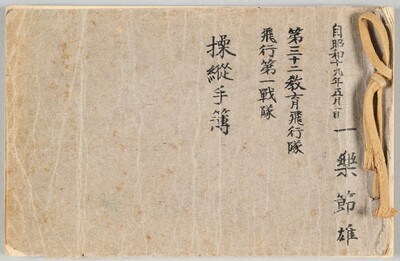 自昭和十九年五月一日
一樂節雄
第三十二教育飛行隊
飛行第一戦隊
操縦手簿